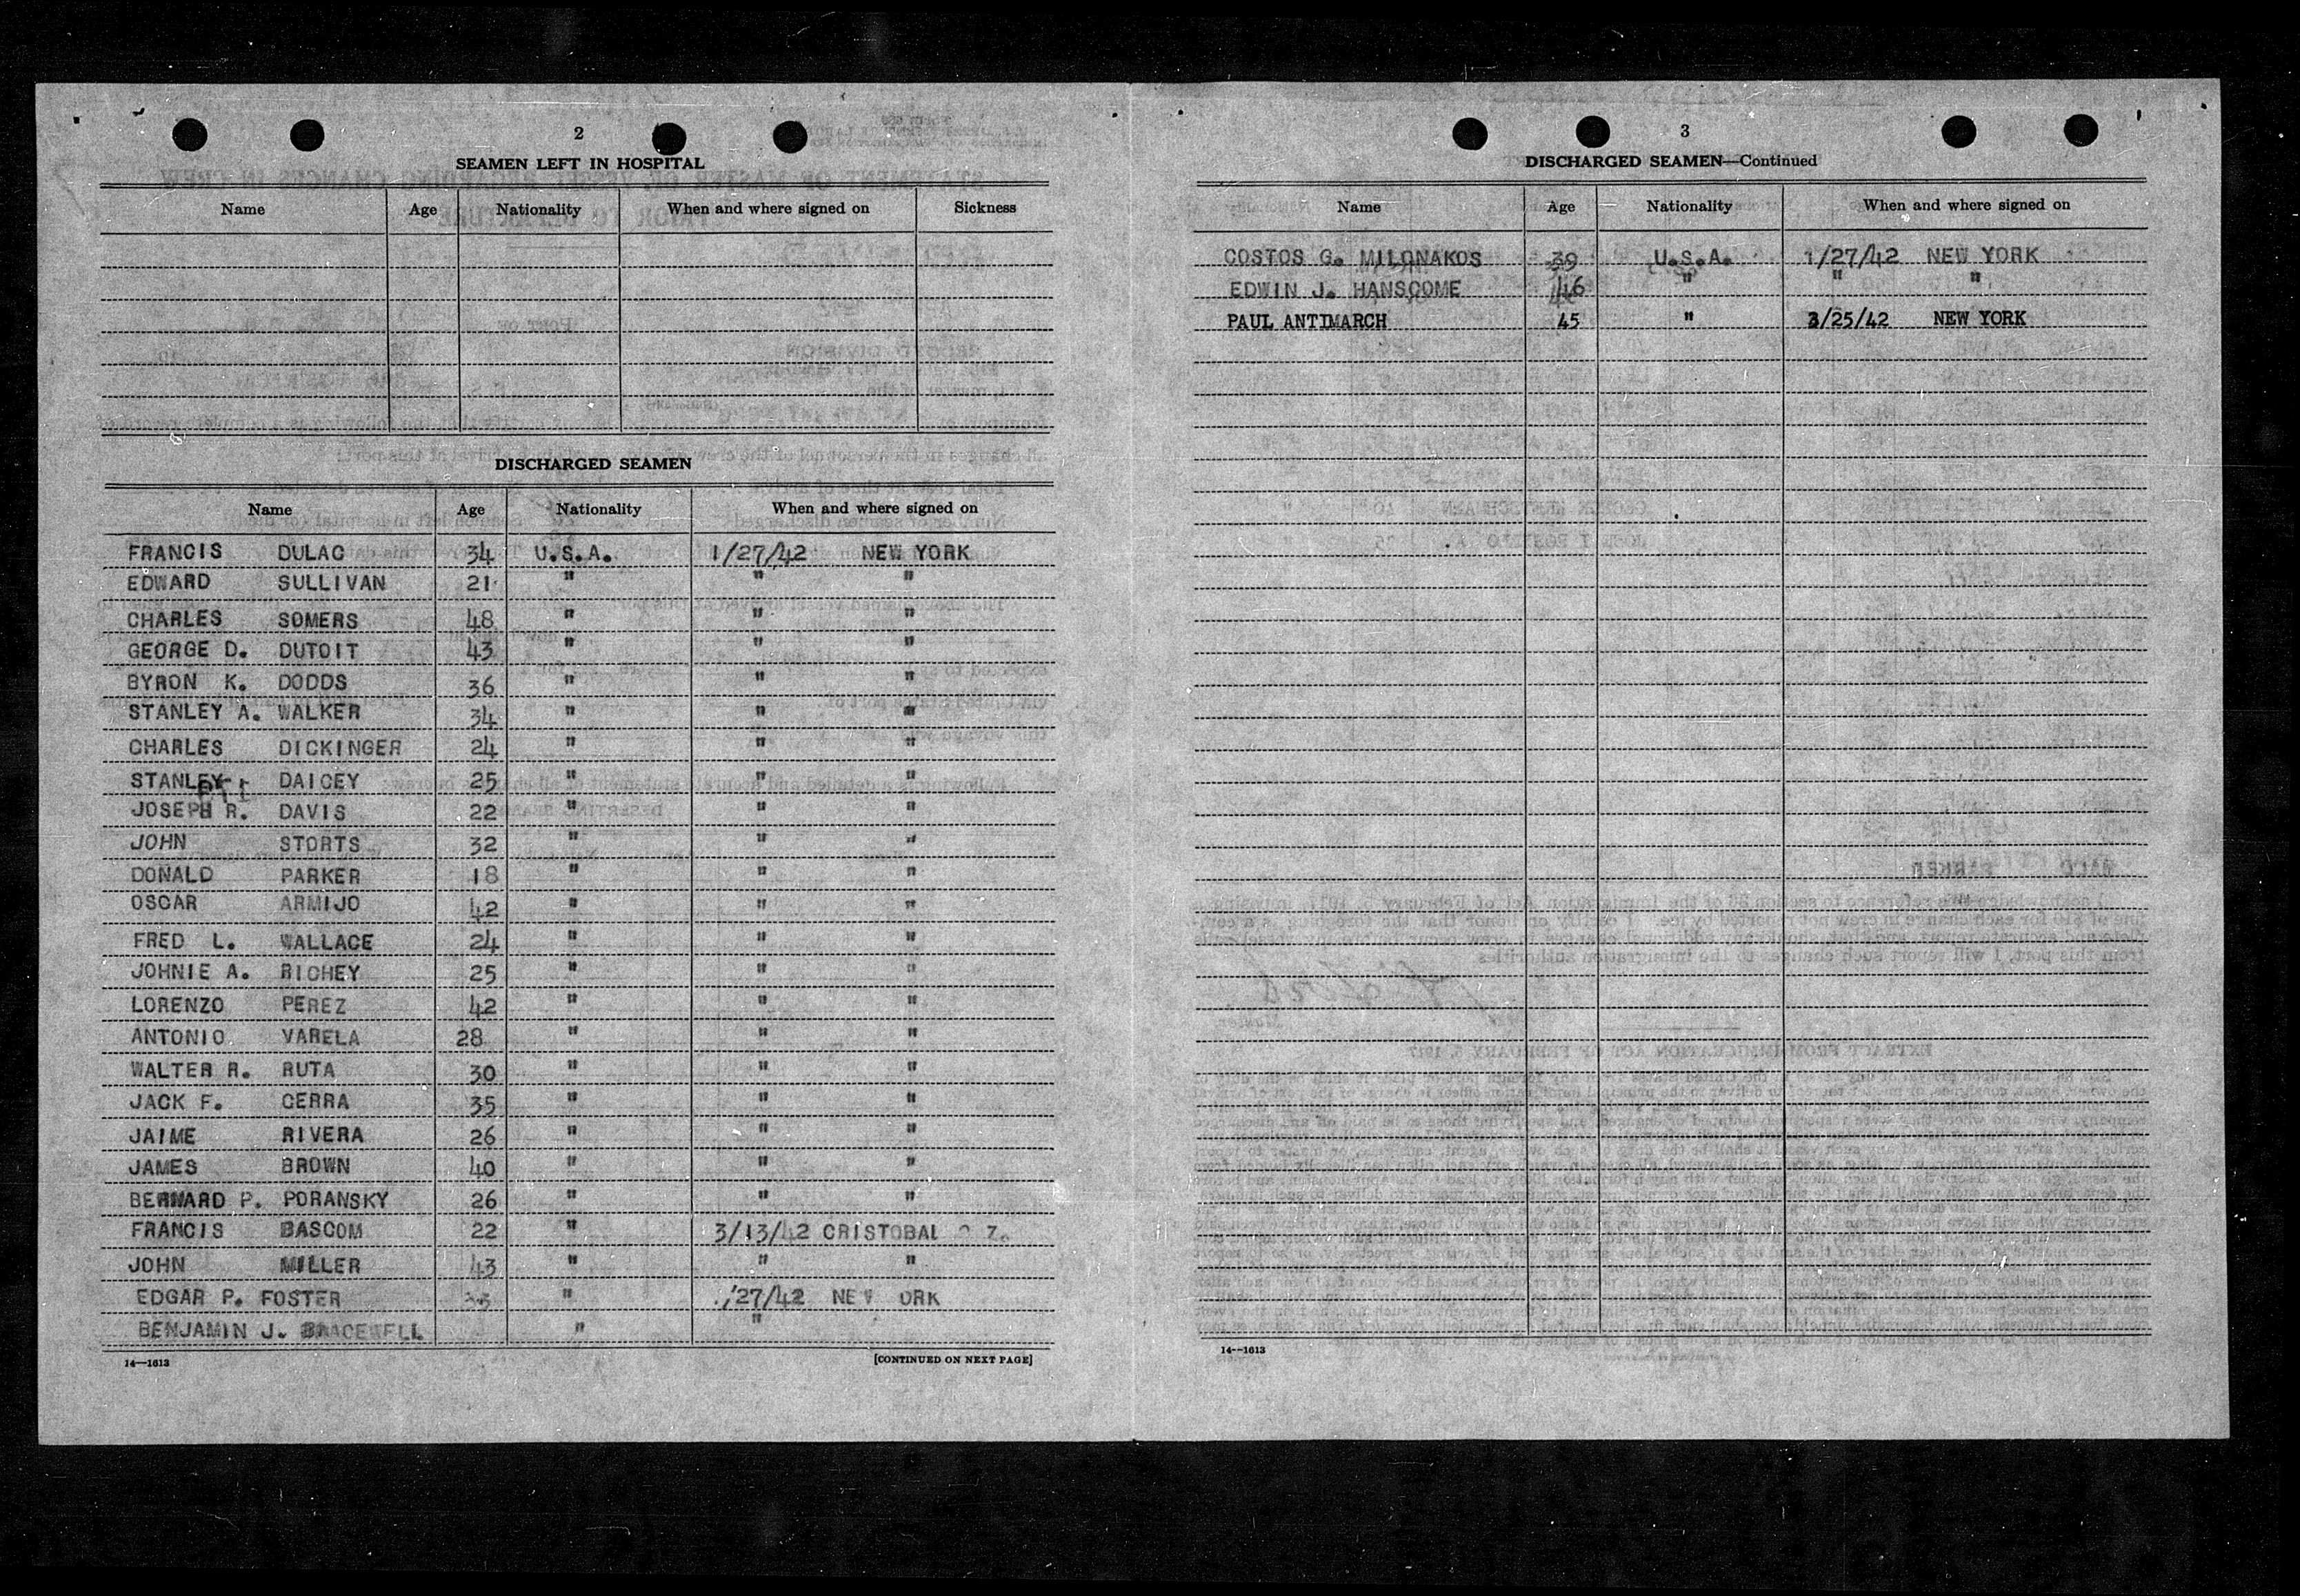 2
SEAMEN LEFT IN HOSPITAL
Name Age Nationality When and where signed on Sickness
DISCHARGED SEAMEN
Name Age Nationality When and where signed on
FRANCIS DULAC 34 U.S.A. 1/27/42 NEW YORK
EDWARD SULLIVAN 21 " " "
CHARLES SOMERS 48 " " "
GEORGE D. DUTOIT 43 " " "
BYRON K. DODDS 36 " " "
STANLEY A. WALKER 34 " " "
CHARLES DICKINGER 24 " " "
STANLEY DAICEY 25 " " "
JOSEPH R. DAVIS 22 " " "
JOHN STORTS 32 " " "
DONALD PARKER 18 " " "
OSCAR ARMIJO 42 " " "
FRED L. WALLACE 24 " " "
JOHNIE A. RICHEY 25 " " "
LORENZO PEREZ 42 " " "
ANTONIO VARELA 28 " " "
WALTER R. RUTA 30 " " "
JACK F. CERRA 35 " " "
JAIME RIVERA 26 " " "
JAMES BROWN 40 " " "
BERNARD P. PORANSKY 26 " " "
FRANCIS BASCOM 22 " 3/13/42 CRISTOBAL Z.
JOHN MILLER 43 " " "
EDGAR P. FOSTER " /27/42 NEW YORK
BENJAMIN J. BRACEWELL " "
14—1613 [CONTINUED ON NEXT PAGE]
3
DISCHARGED SEAMEN—Continued
Name Age Nationality When and where signed on
COSTOS G. MILONAKOS 39 U.S.A. 1/27/42 NEW YORK
EDWIN J. HANSCOME 46 " " "
PAUL ANTIMARCH 45 " 3/25/42 NEW YORK
14—1613